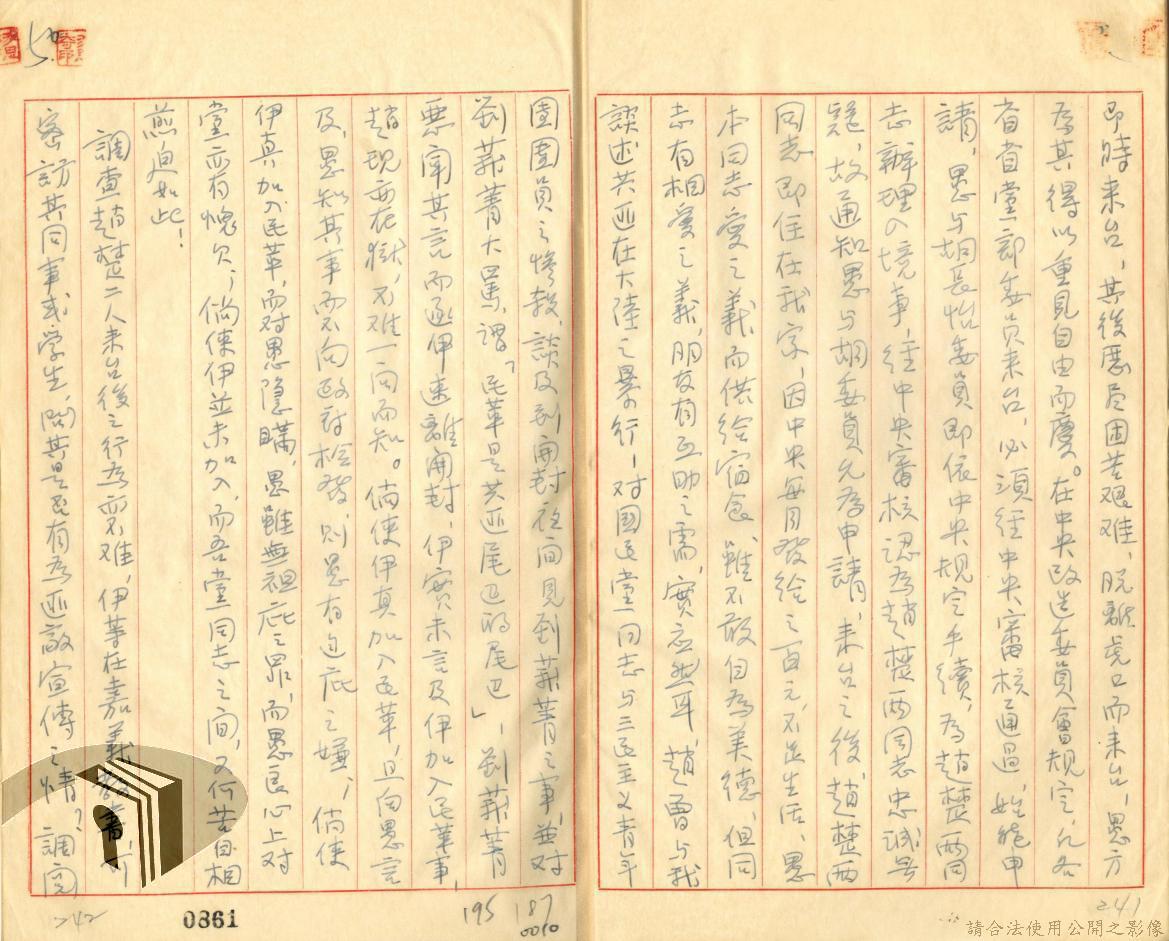 即時来台，其後歷尽困苦艰难，脱離虎口而来台，愚方
為其得以重見自由而慶。在中央改造委員會規定，凡各
省省党部委员来台，必須経中央審核通過，始能申
請，愚与胡長怡委員即依中央規定手續，為趙楚兩同
志辦理入境事，経中央審核認為趙楚兩同志忠誠無
疑，故通知愚与胡委員允為申請，来台之後，趙楚兩
同志即住在我家，因中央每月發给之百元，不足生活，愚
本同志愛之義，而供给宿食，雖不敢自為美德，但同
志有相愛之義，朋友有互助之需，實应然耳，趙曾与我
談述共匪在大陸之暴行，对國民党同志与三民主义青年
團團員之慘殺，談及到開封後面見劉莪菁之事，並对
劉莪菁大罵，謂「民革是共匪尾巴的尾巴」，劉莪菁
恶闻其言而逐伊速離開封，伊實未言及伊加入民革事，
趙现而在獄，不难一问而知。倘使伊真加入民革，且向愚言
及，愚知其事而不向政府检發，则愚有包庇之嫌，倘使
伊真加入民革，而对愚隐瞞，愚雖無袒庇之罪，而愚良心上对
党亦有愧欠，倘使伊並未加入，而吾党同志之间，又何苦自相
煎迫如此！
調查趙楚二人来台後之行為而不难，伊等在嘉義教書，可
密訪其同事或学生，問其是否有為匪敵宣傳之情？調閱
242
0861
195
187
0010
241
請合法使用公開之影像